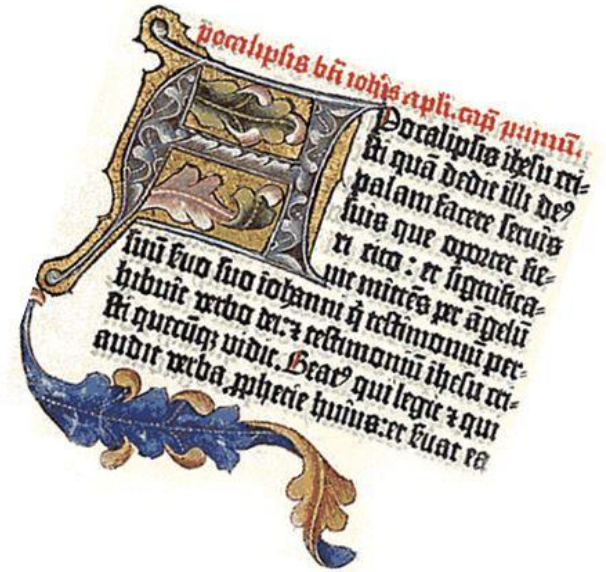 pocalipsis bti iohis apli. cap̄ primū.
Apocalipsis ihesu cri-
sti quā dedit illi de⁹
palam facere servis
suis que oportet fie-
ri cito : et significa-
vit mittēs per āgelū
suū s̄uo suo iohanni q̄ testimoniū per-
hibuit verbo dei. ⁊ testimoniū ihesu cri-
sti quecūqꝫ vidit. Beat⁹ qui legit ⁊ qui
audit verba ꝓphecie huius: et s̄uat ea